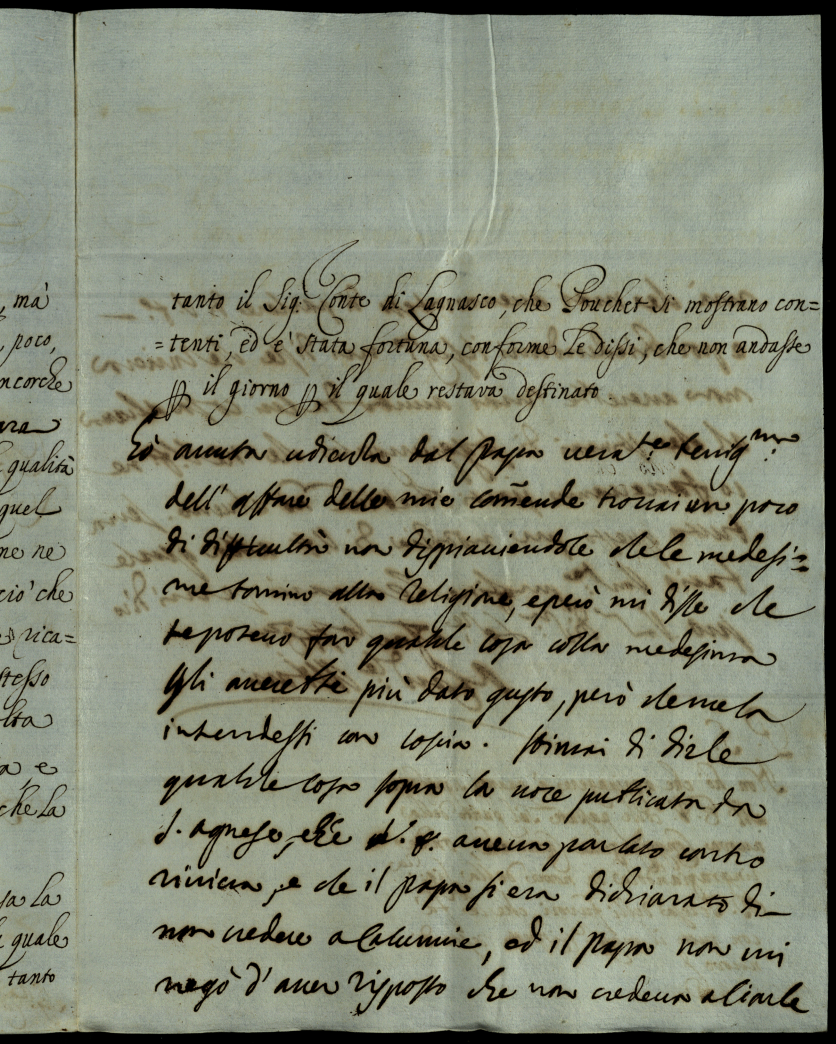 , mà
, poco,
ncorche
ara
qualità
quel
me ne
ciò che
rica=
stesso
olta
a e
che la
sa la
quale
tanto
tanto il Sig: Conte di Lagnasco, che Pouchet si mostrano con=
=tenti, ed è stata fortuna, conforme Le dissi, che non andasse
il giorno il quale restava destinato.
Hò auuta udienza dal Papa uera.te benig.ma
dell'affare delle mie com̃ende trouai un poco
di difficultà non dispiacendole che le medesi=
me tornino alla Religione, e però mi disse che
se poteuo far qualche cosa colla medesima
gli aueressi più dato gusto, però che me la
intendessi con Coscia. Stimai di dirle
qualche cosa sopra la uoce publicata da
S. Agnese, che aueua parlato contro
riuiera, e che il Papa si era dichiarato di
non credere a Calunnie, ed il Papa non mi
negò d'auer risposto che non credeua a ciarle